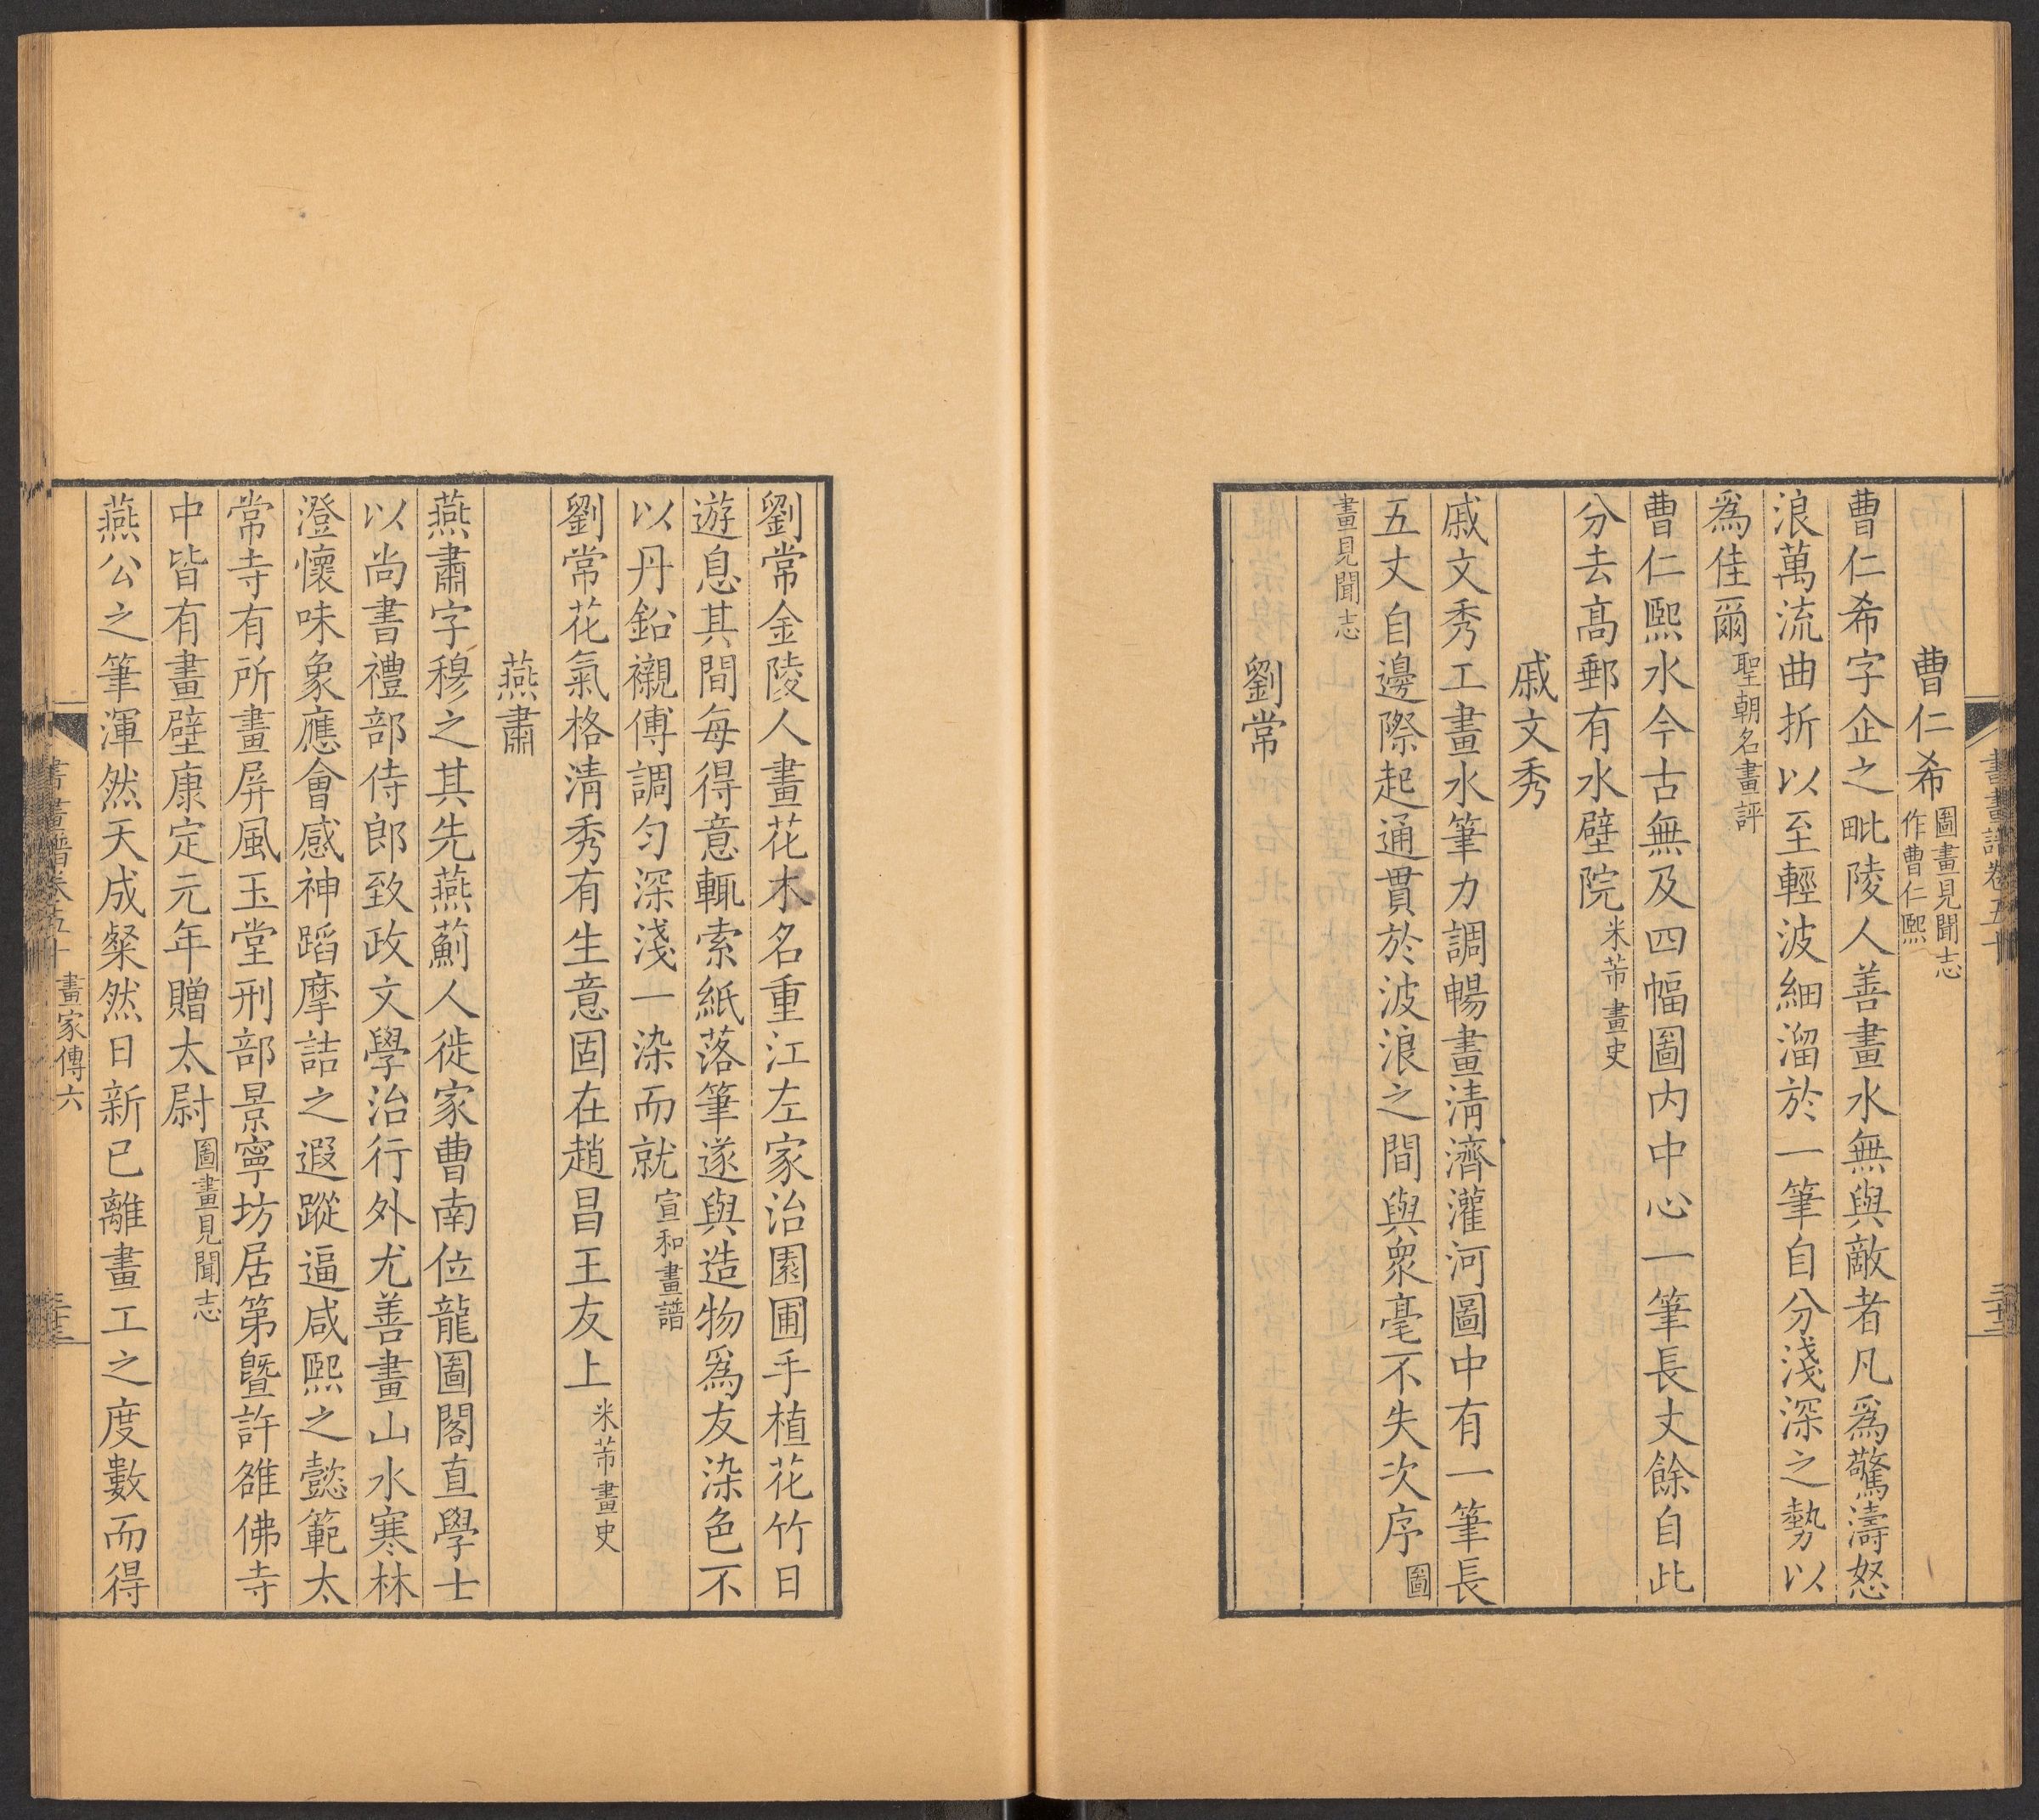 書畫譜卷五十
曹仁希圖畫見聞志作曹仁熙
曹仁希字企之毗陵人善畫水無與敵者凡爲驚濤怒
浪萬流曲折以至輕波細溜於一筆自分淺深之勢以
爲佳爾聖朝名畫評
曹仁熙水今古無及四幅圖内中心一筆長丈餘自此
分去高郵有水壁院米芾畫史
戚文秀
戚文秀工畫水筆力調暢畫淸濟灌河圖中有一筆長
五丈自邊際起通貫於波浪之間與衆毫不失次序圖
畫見聞志
劉常
劉常金陵人畫花木名重江左家治園圃手植花竹日
遊息其間每得意輒索紙落筆遂與造物爲友染色不
以丹鉛襯傅調匀深淺一染而就宣和畫譜
劉常花氣格淸秀有生意固在趙昌王友上米芾畫史
燕肅
燕肅字穆之其先燕薊人徙家曹南位龍圖閣直學士
以尚書禮部侍郎致政文學治行外尤善畫山水寒林
澄懷味象應會感神蹈摩詰之遐蹤逼咸熙之懿範太
常寺有所畫屏風玉堂刑部景寧坊居第暨許雒佛寺
中皆有畫壁康定元年贈太尉圖畫見聞志
燕公之筆渾然天成粲然日新已離畫工之度數而得
書畫譜卷五十 畫家傳六